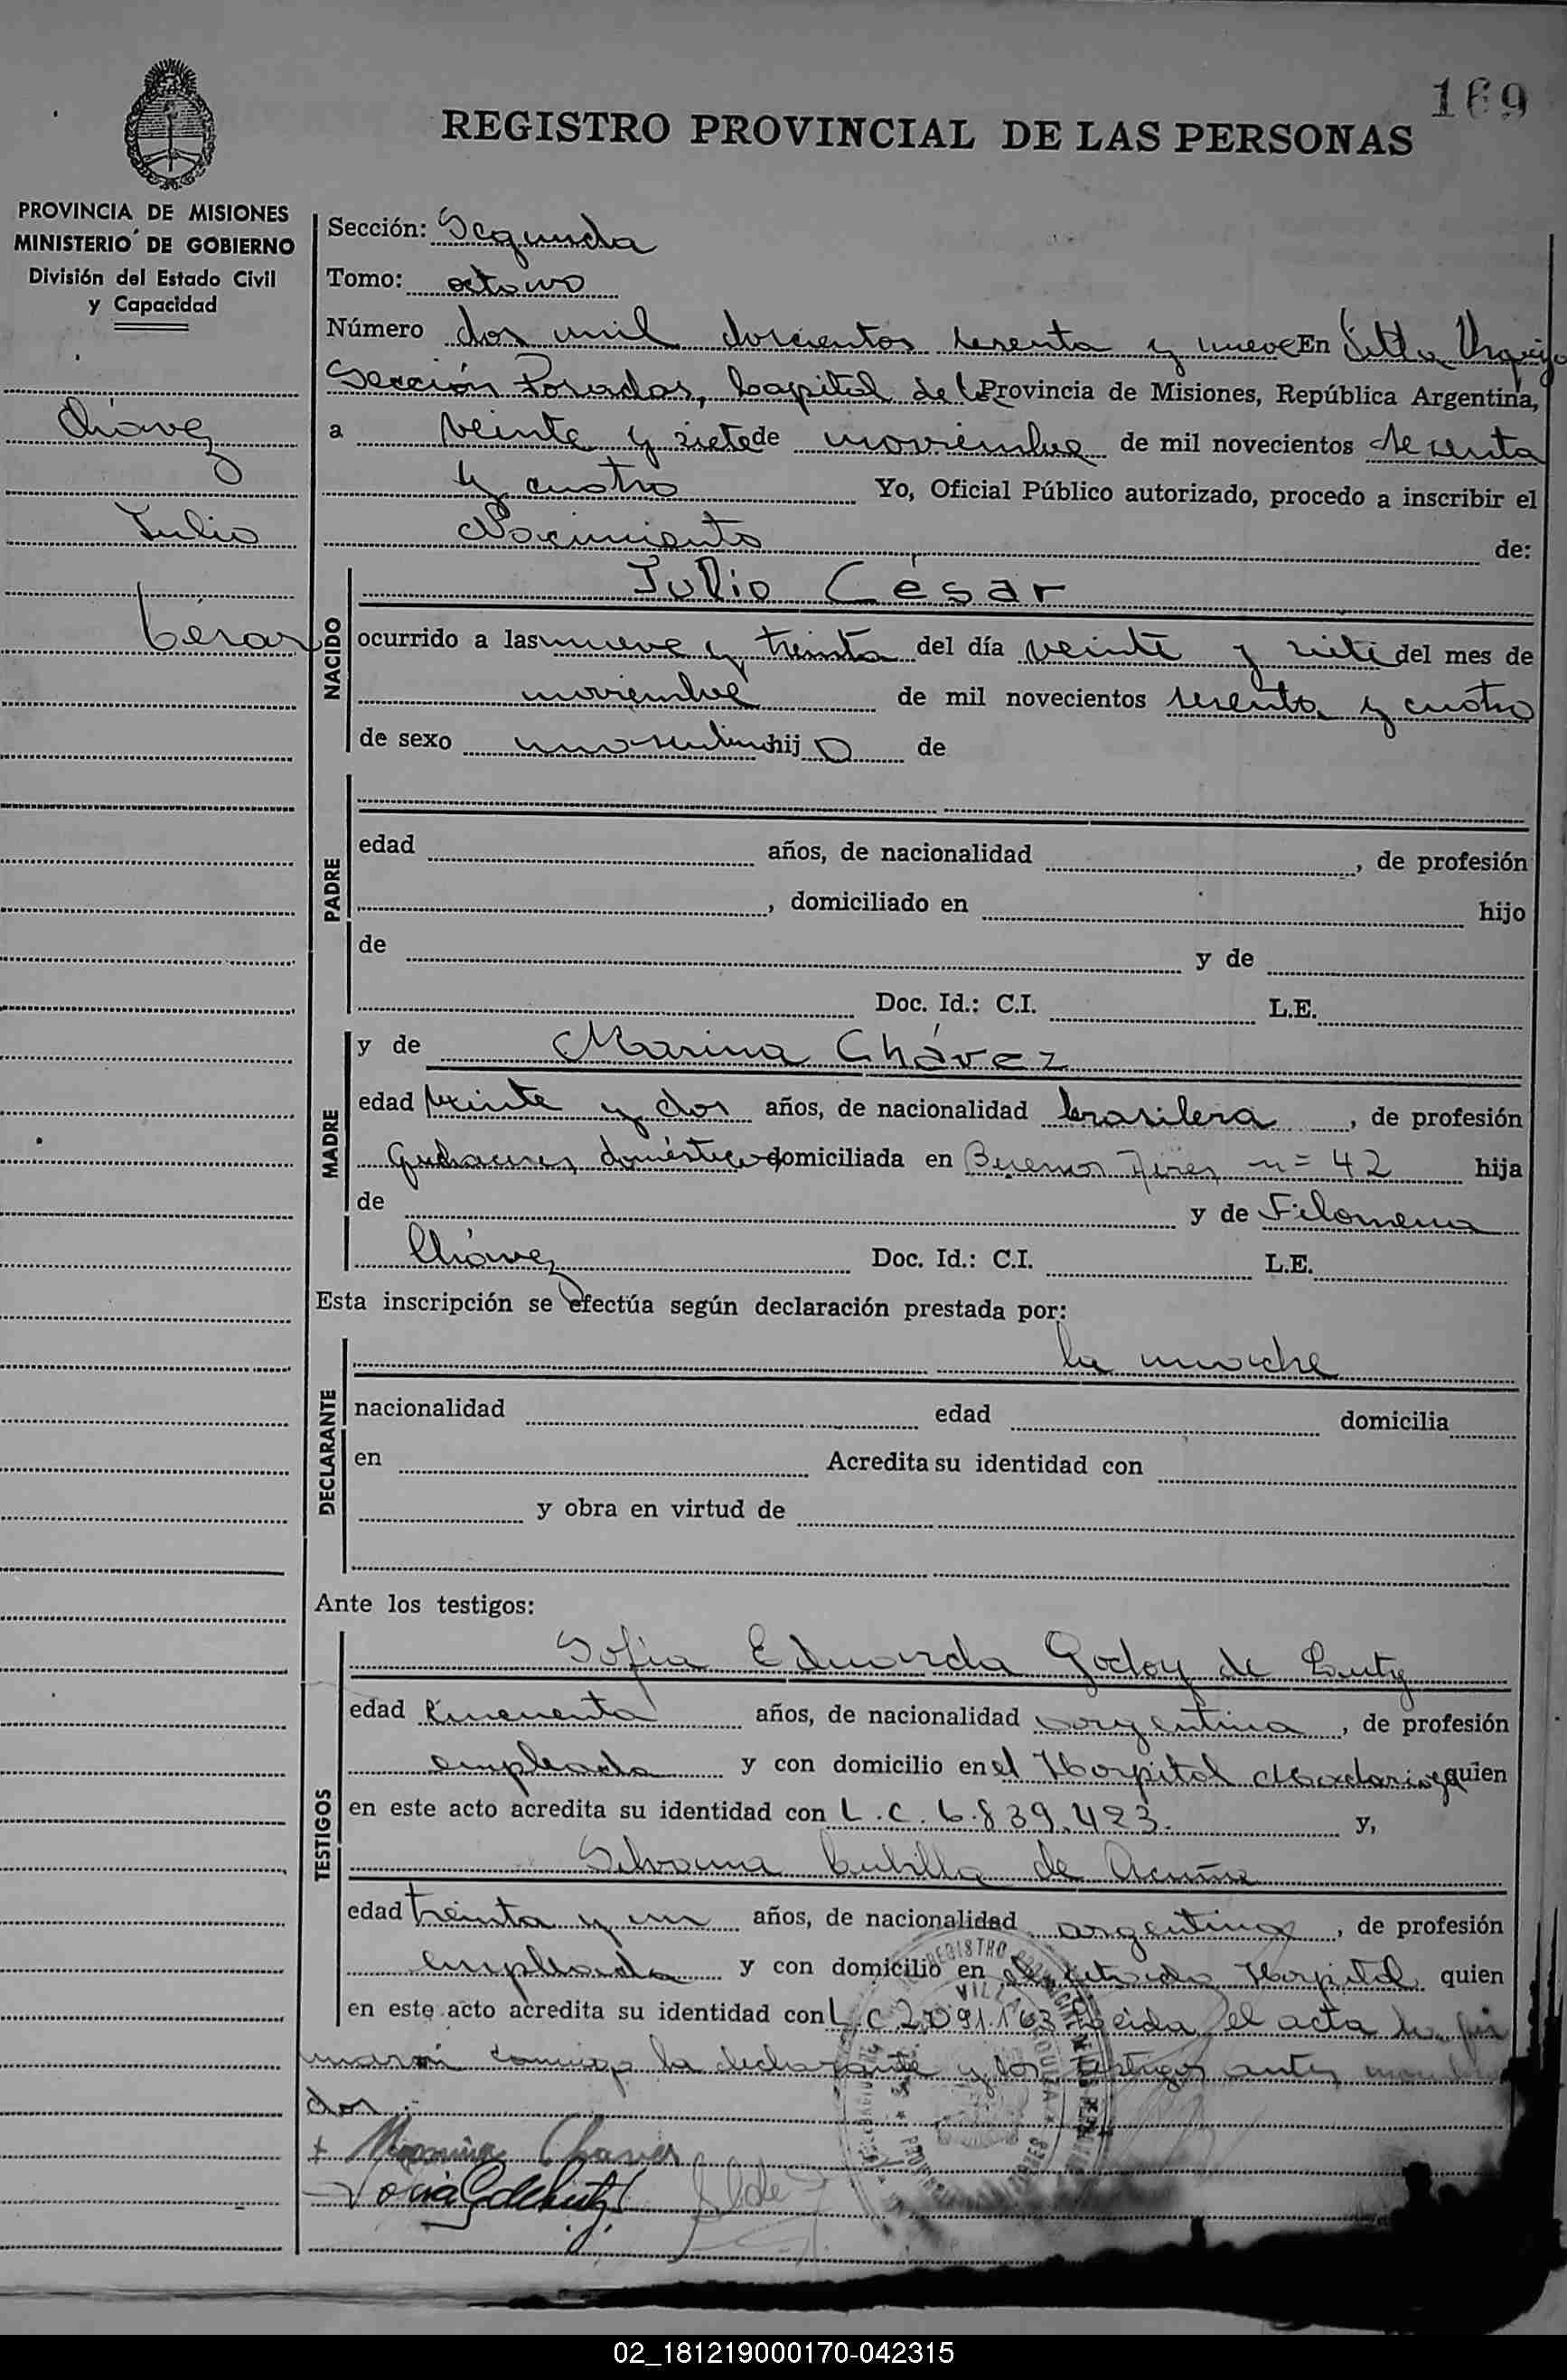 169
REGISTRO PROVINCIAL DE LAS PERSONAS
PROVINCIA DE MISIONES
MINISTERIO DE GOBIERNO
División del Estado Civil
y Capacidad
Chávez
Julio
César
Sección: Segunda
Tomo: octavo
Número dos mil doscientos sesenta y nueve En Villa Urquiza
Sección Posadas, Capital de la Provincia de Misiones, República Argentina,
a veinte y siete de noviembre de mil novecientos sesenta
y cuatro Yo, Oficial Público autorizado, procedo a inscribir el
Nacimiento de:
NACIDO
Julio César
ocurrido a las nueve y treinta del día veinte y siete del mes de
noviembre de mil novecientos sesenta y cuatro
de sexo masculino hijo de
PADRE
edad años, de nacionalidad , de profesión
, domiciliado en hijo
de y de
Doc. Id.: C.I. L.E.
MADRE
y de Marina Chávez
edad veinte y dos años, de nacionalidad brasilera , de profesión
Quehaceres domésticos domiciliada en Buenos Aires n= 42 hija
de y de Filomena
Chávez Doc. Id.: C.I. L.E.
Esta inscripción se efectúa según declaración prestada por:
DECLARANTE
la madre
nacionalidad edad domicilia
en Acredita su identidad con
y obra en virtud de
Ante los testigos:
TESTIGOS
Sofia Eduarda Godoy de
edad cincuenta años, de nacionalidad argentina , de profesión
empleada y con domicilio en el Hospital Madariaga quien
en este acto acredita su identidad con L.C. 6.839.423. y,
Silvana Cubilla de Acuña
edad treinta y un años, de nacionalidad argentina , de profesión
empleada y con domicilio en el citado Hospital quien
en este acto acredita su identidad con L.C 2.091.163 Leida el acta la fir
maron conmigo la declarante y los testigos antes
dos.
Marina Chaves
REGISTRO
VILLA URQUIZA
02_181219000170-042315